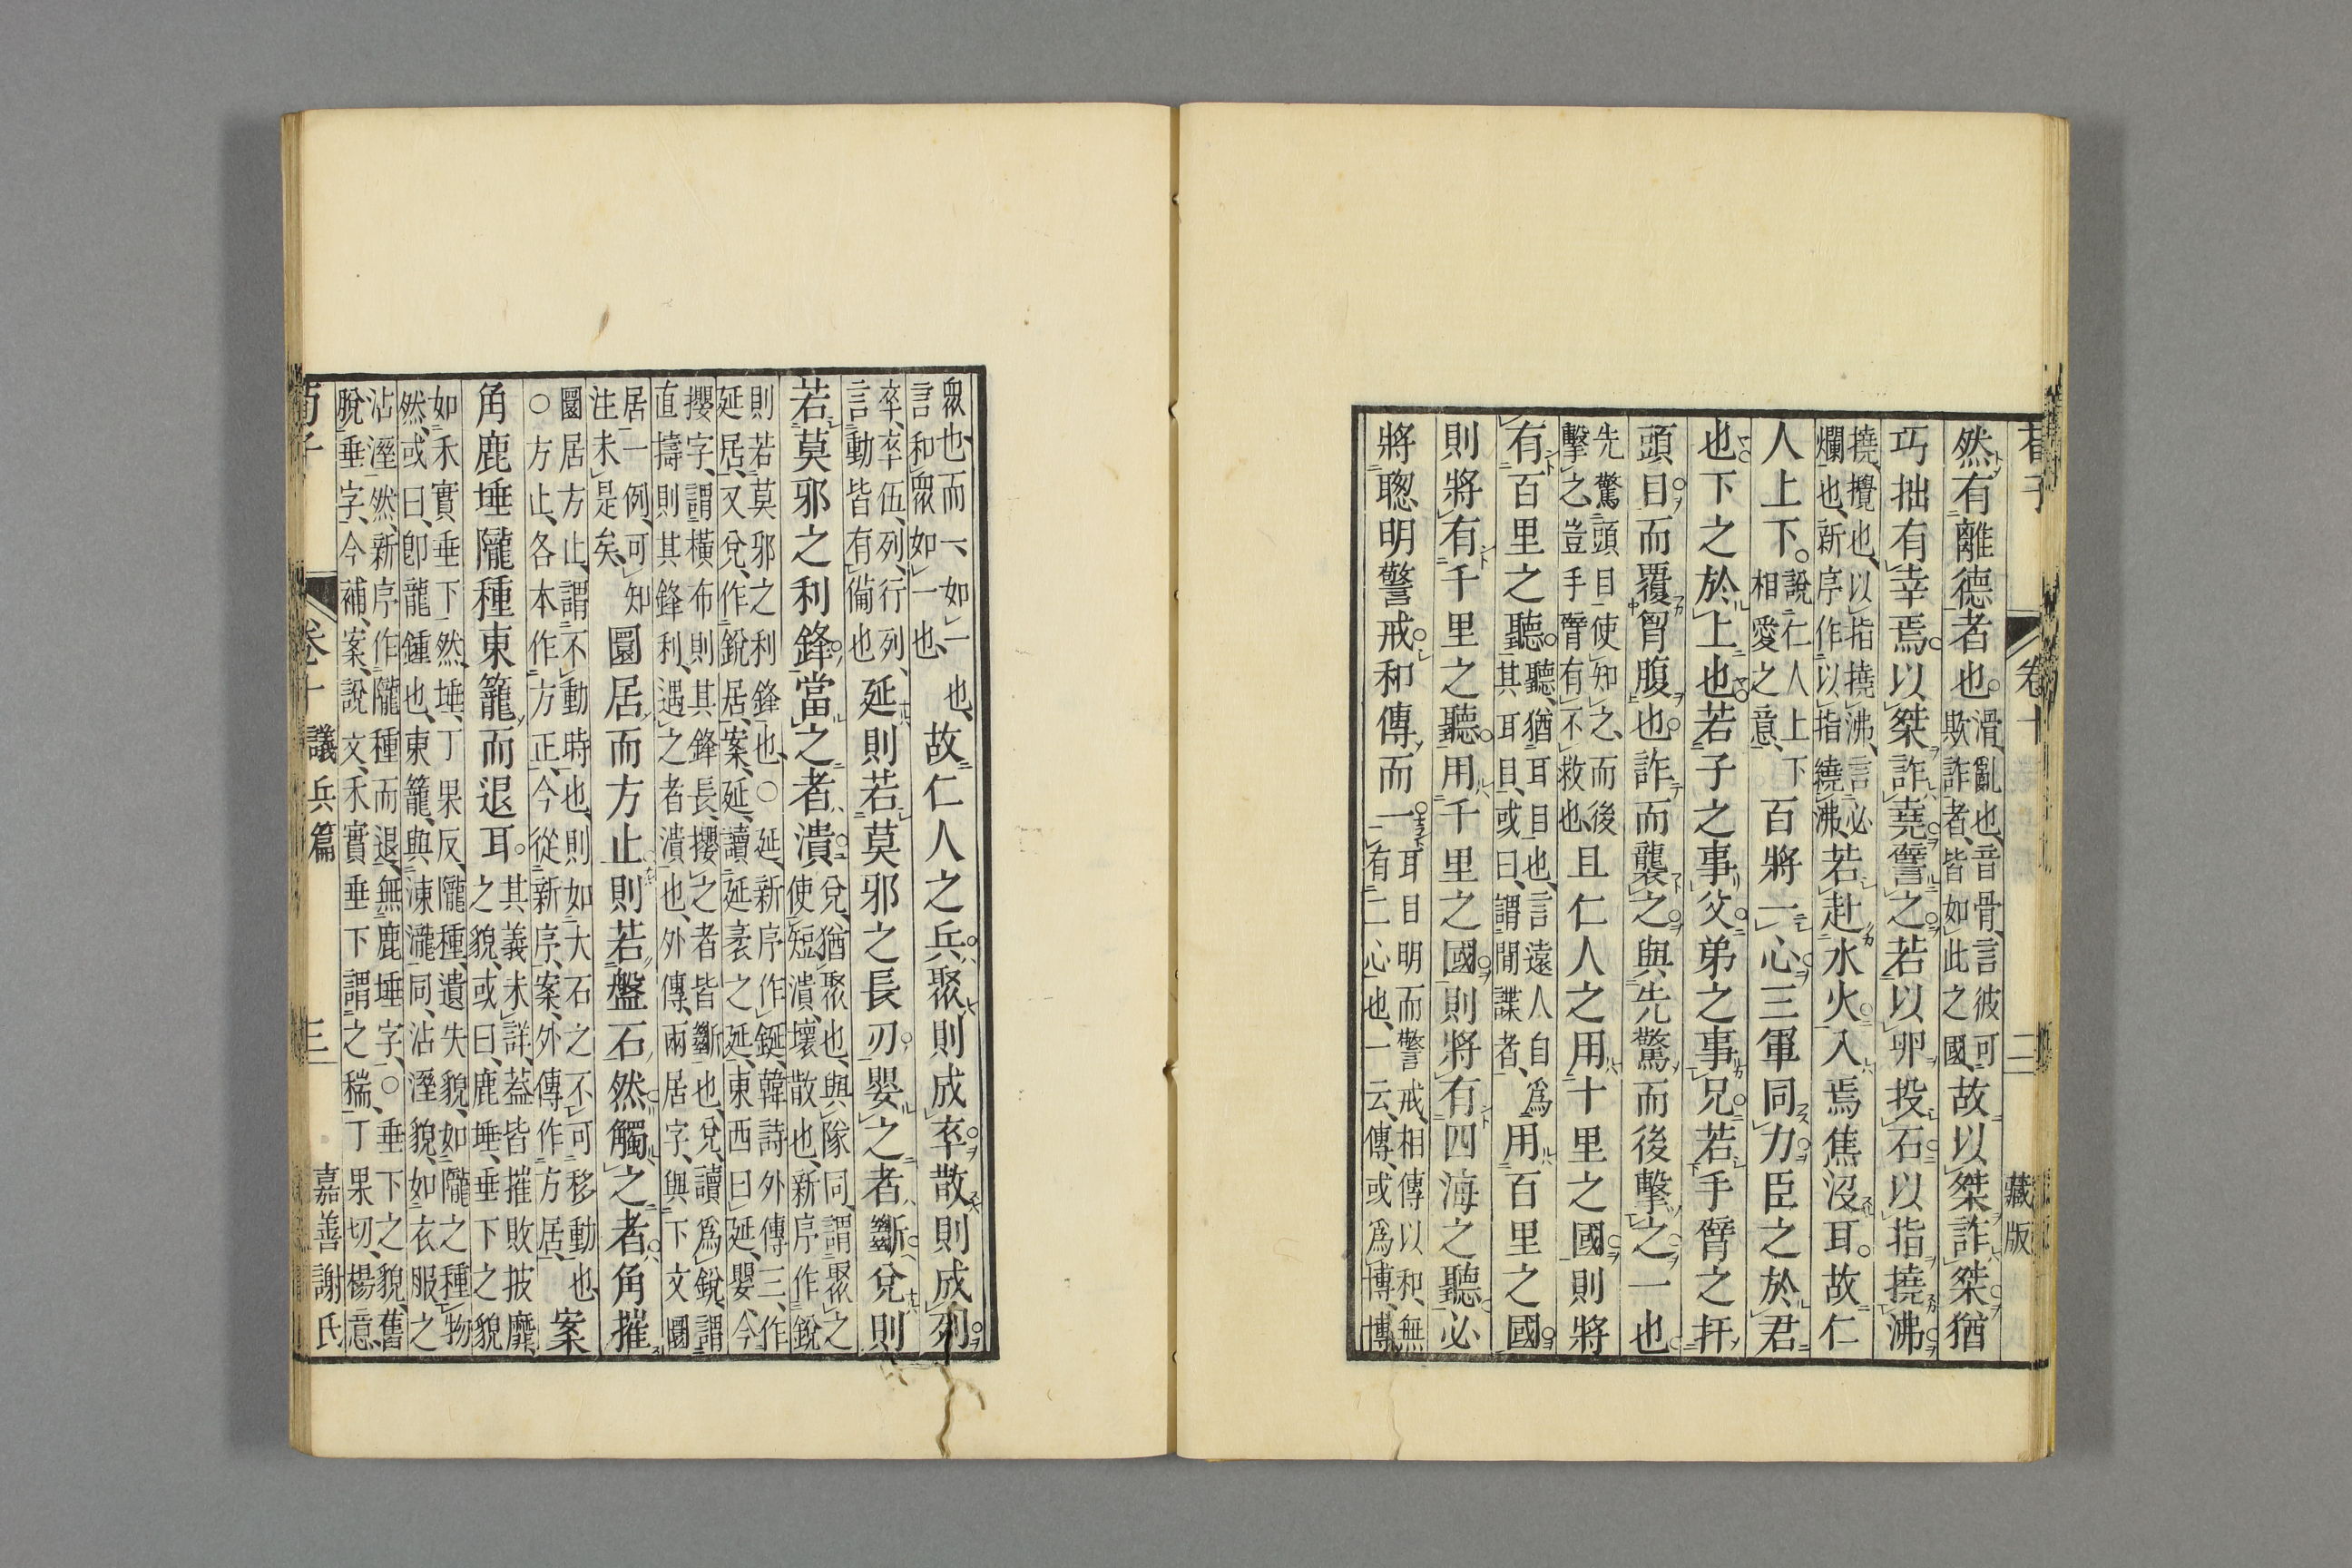 荀子 卷十 二 藏版
然有離德者也。滑、亂也、音骨、言彼可欺詐者、皆如此之國、故以桀詐桀猶
巧拙有幸焉。以桀詐堯、譬之若以卵投石以指撓沸
撓、攪也、以指撓沸、言必爛也、新序作以指繞沸、若赴水火入焉焦沒耳。故仁
人上下。說仁人上下相愛之意、百將一心三軍同力臣之於君
也下之於上也若子之事父弟之事兄若手臂之扞
頭目而覆胷腹也詐而襲之與先驚而後擊之一也
先驚頭目使知之、而後擊之豈手臂有不救也、且仁人之用十里之國則將
有百里之聽。聽、猶耳目也、言遠人自爲其耳目、或曰、謂間諜者、用百里之國
則將有千里之聽。用千里之國則將有四海之聽必
將聰明警戒和傳而一耳目明而警戒、相傳以和、無有二心也、一云、傳、或爲博、博
衆也、而一、如一也、言和衆如一也、故仁人之兵聚則成卒散則成列
卒、卒伍、列、行列、言動皆有備也延則若莫邪之長刃嬰之者斷兌則
若莫邪之利鋒當之者潰兌、猶聚也、與隊同、謂聚之使短、潰、壞散也、新序作銳
則若莫邪之利鋒也、○延、新序作鋋、韓詩外傳三、作延居、又兌、作銳居、案、延、讀延袤之延、東西曰延、嬰、今
攖字、謂橫布則其鋒長、攖之者皆斷也、兌、讀爲銳、謂直擣則其鋒利、遇之者潰也、外傳、兩居字、與下文圜
居一例、可知注未是矣、圜居而方止則若盤石然觸之者角摧
圜居方止、謂不動時也、則如大石之不可移動也、○方止、各本作方正、今從新序、案、外傳作方居、案
角鹿埵隴種東籠而退耳。其義未詳、葢皆摧敗披靡之貌、或曰、鹿埵、垂下之貌
如禾實垂下然、埵、丁果反、隴種、遺失貌、如隴之種物然、或曰、卽龍鍾也、東籠、與涷瀧同、沾溼貌、如衣服之
沾溼然、新序作隴種而退、無鹿埵字、○垂下之貌、舊脫垂字、今補、案、說文、禾實垂下謂之䅔、丁果切、楊意
荀子 卷十 議兵篇 三 嘉善謝氏